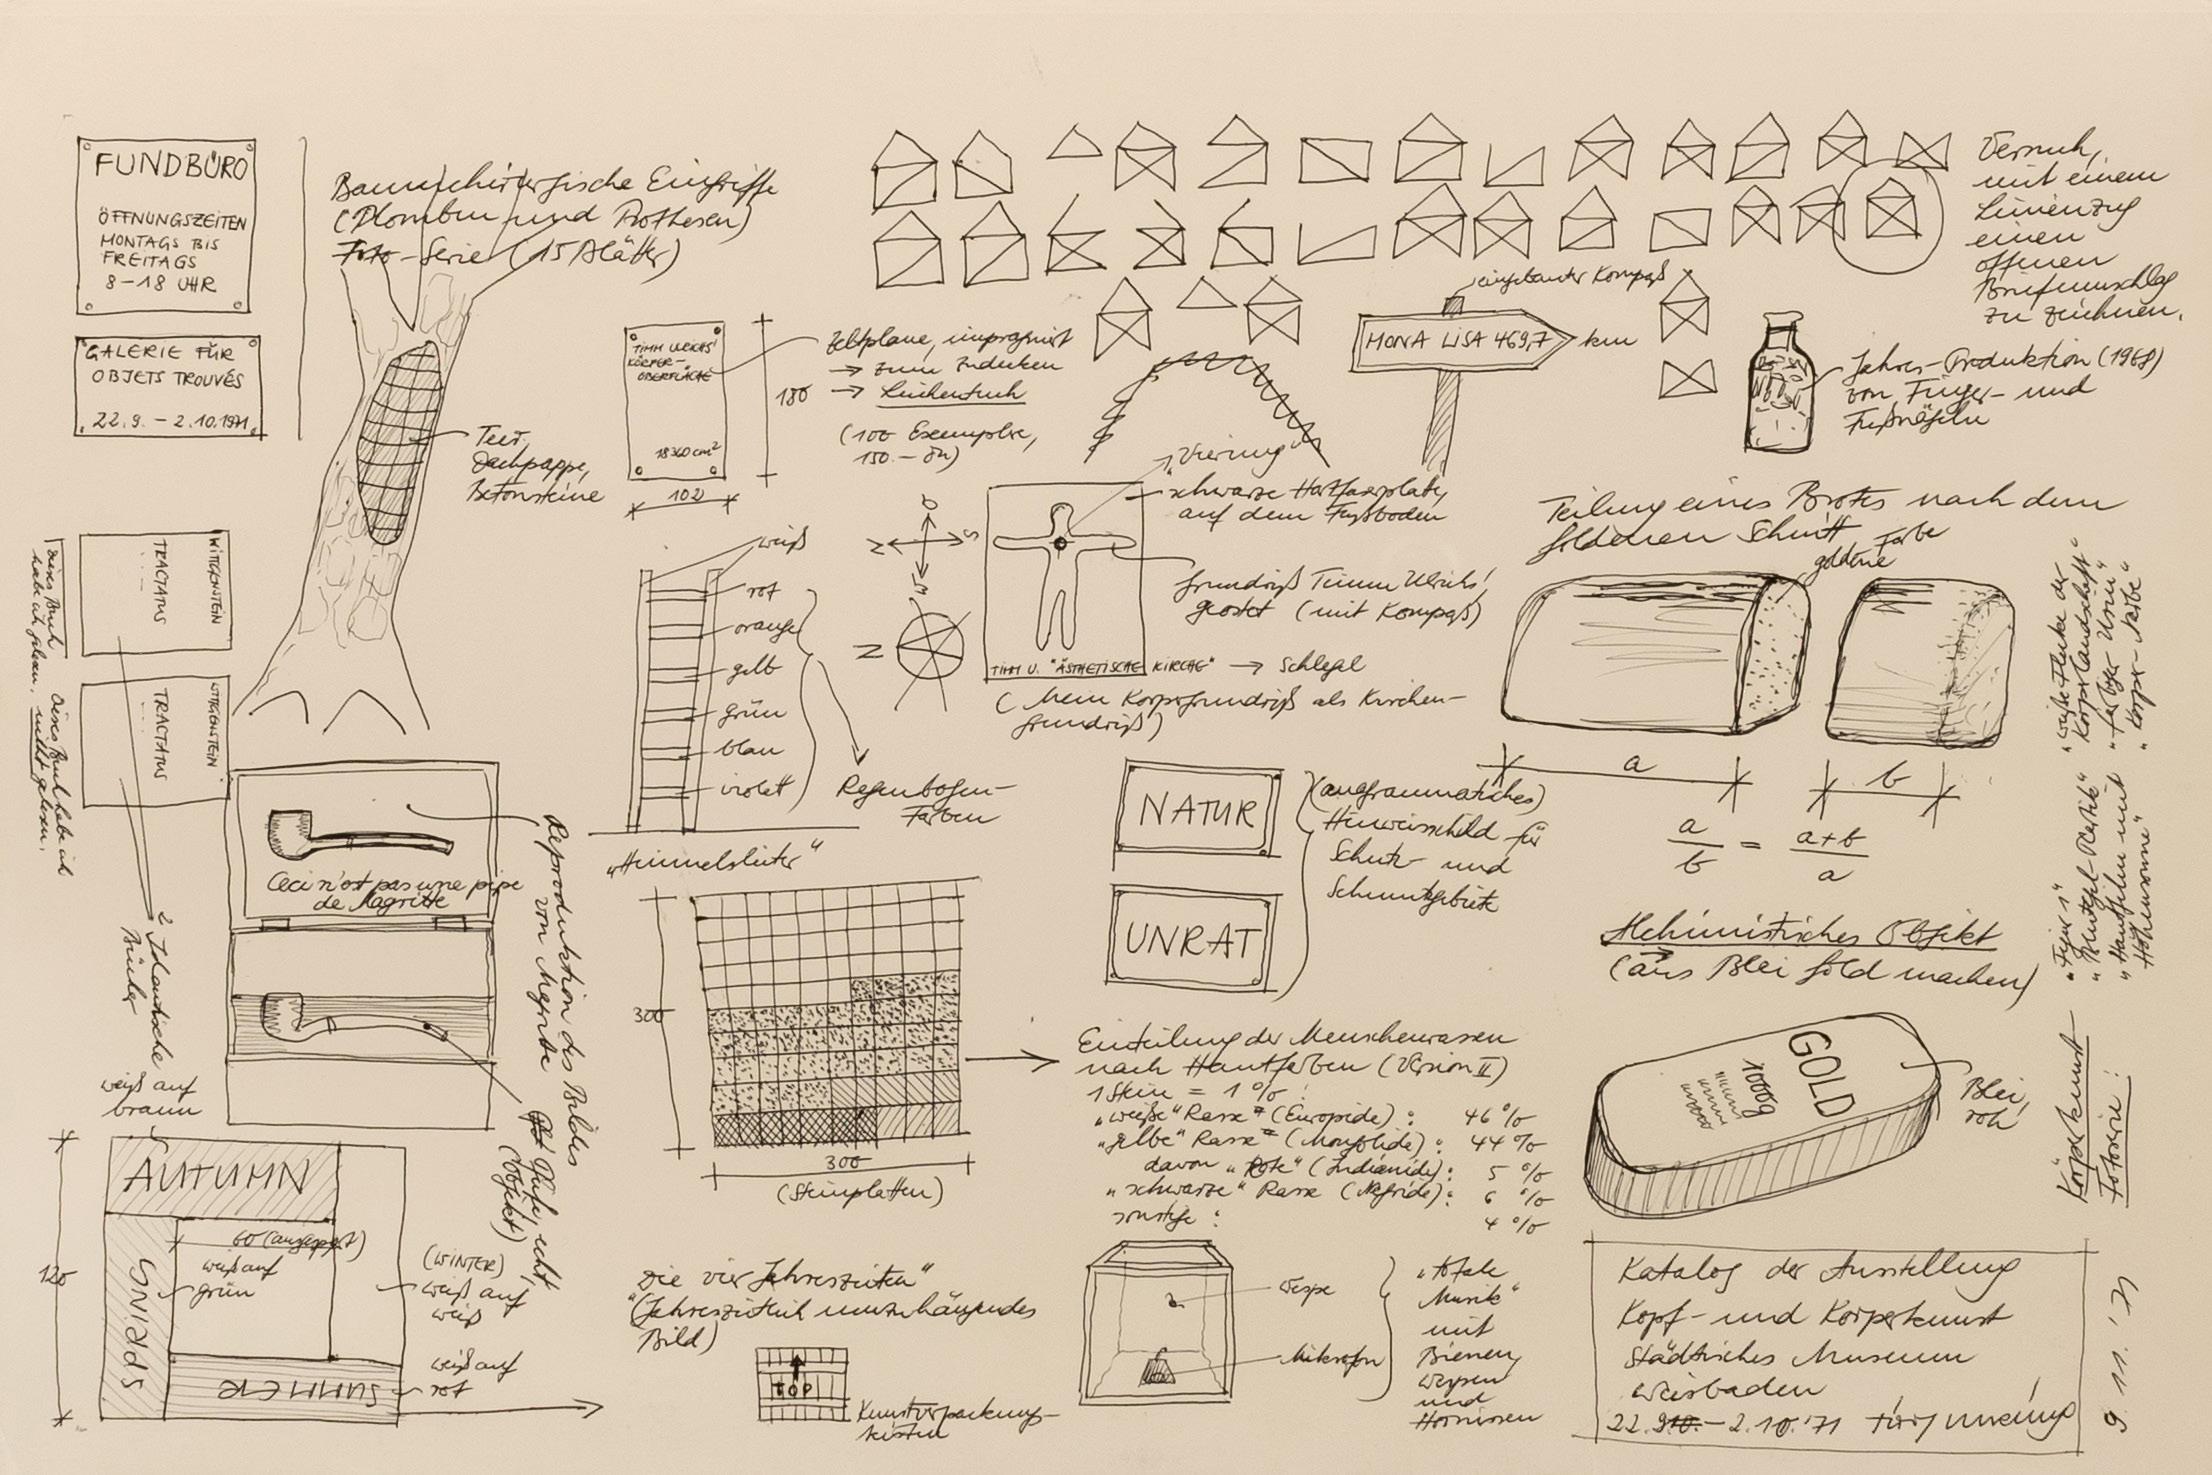 FUNDBÜRO
ÖFFNUNGSZEITEN
MONTAGS BIS
FREITAGS
8–18 UHR
GALERIE FÜR
OBJETS TROUVÉS
22.9. – 2.10.1971
Baumchirurgische Eingriffe
(Plomben und Prothesen)
Foto-Serie (15 Blätter)
Teer,
Dachpappe,
Betonsteine
WITTGENSTEIN
TRACTATUS
dieses Buch
habe ich gelesen.
WITTGENSTEIN
TRACTATUS
Dieses Buch habe ich
nicht gelesen.
2 Identische
Bücher
Ceci n'est pas une pipe
de Magritte
Reproduktion des Bildes
von Magritte
Pfeife, echt
(Objekt)
weiß auf
braun
AUTUMN
SPRING
SUMMER
120
60 (ausgespart)
weiß auf
grün
(WINTER)
weiß auf
weiß
weiß auf
rot
"Die vier Jahreszeiten"
(Jahreszeitlich umzuhängendes
Bild)
TOP
Kunstverpackungs-
kisten
TIMM ULRICHS'
KÖRPER-
OBERFLÄCHE
18360 cm²
180
102
Zeltplane, imprägniert
→ zum Zudecken
→ Leichentuch
(100 Exemplare,
150.– DM)
weiß
rot
orange
gelb
grün
blau
violett
Regenbogen-
Farben
„Himmelsleiter“
300
300
(Steinplatten)
Versuch,
mit einem
Linienzug
einen
offenen
Briefumschlag
zu zeichnen.
eingebauter Kompaß
MONA LISA 469,7
km
Jahres-Produktion (1968)
von Finger- und
Fußnägeln
„Vierung“
schwarze Hartfaserplatte,
auf dem Fussboden
O
N
S
W
N
Grundriß Timm Ulrichs',
geostet (mit Kompaß)
TIMM U. "ÄSTHETISCHE KIRCHE" → Schlegel
(Mein Körpergrundriß als Kirchen-
grundriß)
NATUR
UNRAT
(anagrammatisches)
Hinweisschild für
Schutz- und
Schmutzgebiete
Teilung eines Brotes nach dem
goldenen Schnitt
goldene Farbe
a
b
a/b = a+b/a
Alchimistisches Objekt
(aus Blei Gold machen)
GOLD
1000g
Blei,
roh
Einteilung der Menschenrassen
nach Hautfarben (Version II)
1 Stein = 1%:
„weiße“ Rasse (Europide): 46%
„gelbe“ Rasse (Mongolide): 44%
davon „Rote“ (Indianide): 5 %
„schwarze“ Rasse (Negride): 6 %
sonstige: 4 %
Wespe
Mikrofon
„totale
Musik“
mit
Bienen,
Wespen
und
Hornissen
"weiße Flecke der
Körperlandschaft"
"farbiger Urin"
"Körper-Farbe"
"Figur 1"
"Blutegel-Plastik"
"Hautfilm mit
Höhensonne"
Körperkunst
Fotoserie:
Katalog der Ausstellung
Kopf- und Körperkunst
Städtisches Museum
Wiesbaden
22.9. – 2.10.'71
9.11.'71